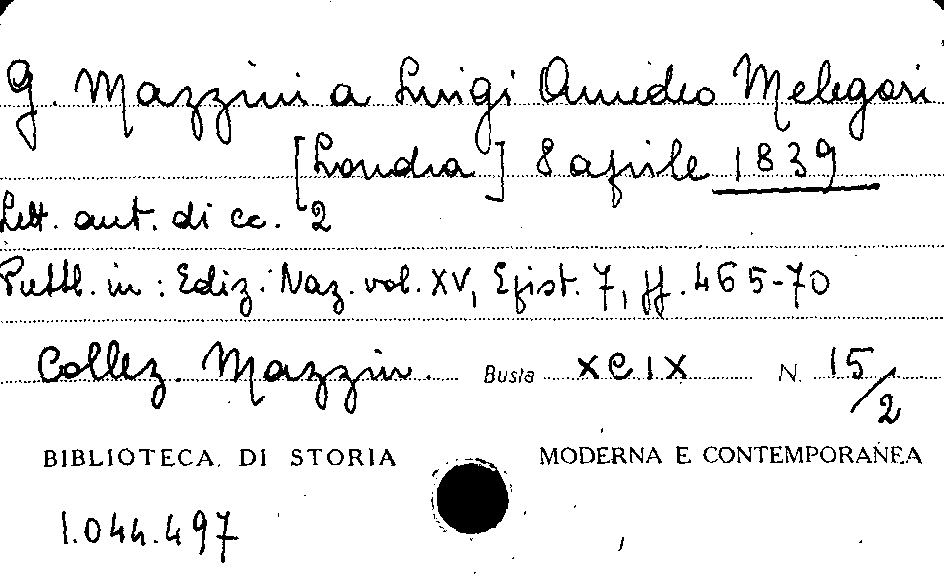 G. Mazzini a Luigi Amedeo Melegari
[Londra] 8 aprile 1839
Lett. aut. di cc. 2
Pubbl. in: Ediz. Naz. vol. XV, Epist. 7, pp. 465-70
Collez. Mazzin. Busta XCIX N. 15/2
BIBLIOTECA DI STORIA MODERNA E CONTEMPORANEA
1.044.497